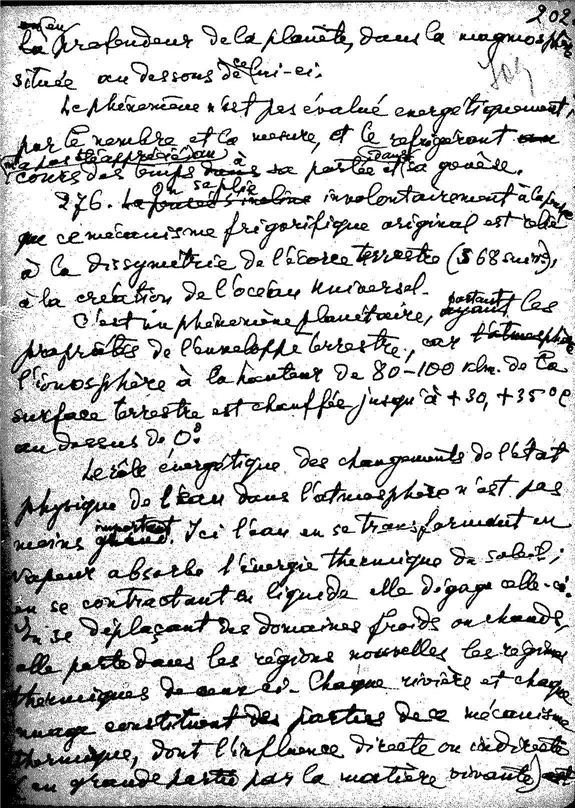 202
en
la profendeur de la planète, dans la magmosphère
située au dessous de celui-ci.
Le phénomène n'est pas évalué energétiquement,
par le nombre et la mesure, et le refrigérant
n'a pas été apprécié au
cours des temps dans sa portée et dans sa genèse.
276. On se plie involontairement à la
que ce mécanisme frigorifique original est relié
à la dissymétrie de l'écorce terrestre (§ 68 suiv.),
à la création de l'océan universel.
C'est un phénomène planétaire, portant les
propriétés de l'enveloppe terrestre, car
l'ionosphère à la hauteur de 80–100 klm. de la
surface terrestre est chauffée jusqu'à +30, +35° C
au dessus de 0°.
Le rôle énergétique des changements de l'état
physique de l'eau dans l'atmosphère n'est pas
moins important. Ici l'eau en se transformant en
vapeur absorbe l'énergie thermique du soleil;
en se contractant en liquide elle dégage celle-ci.
En se déplaçant des domaines froids ou chauds
elle porte dans les régions nouvelles les régimes
thermiques de ceux ci. Chaque rivière et chaque
nuage constituent des parties de ce mécanisme
thermique, dont l'influence directe ou indirecte
(en grande partie par la matière vivante) est